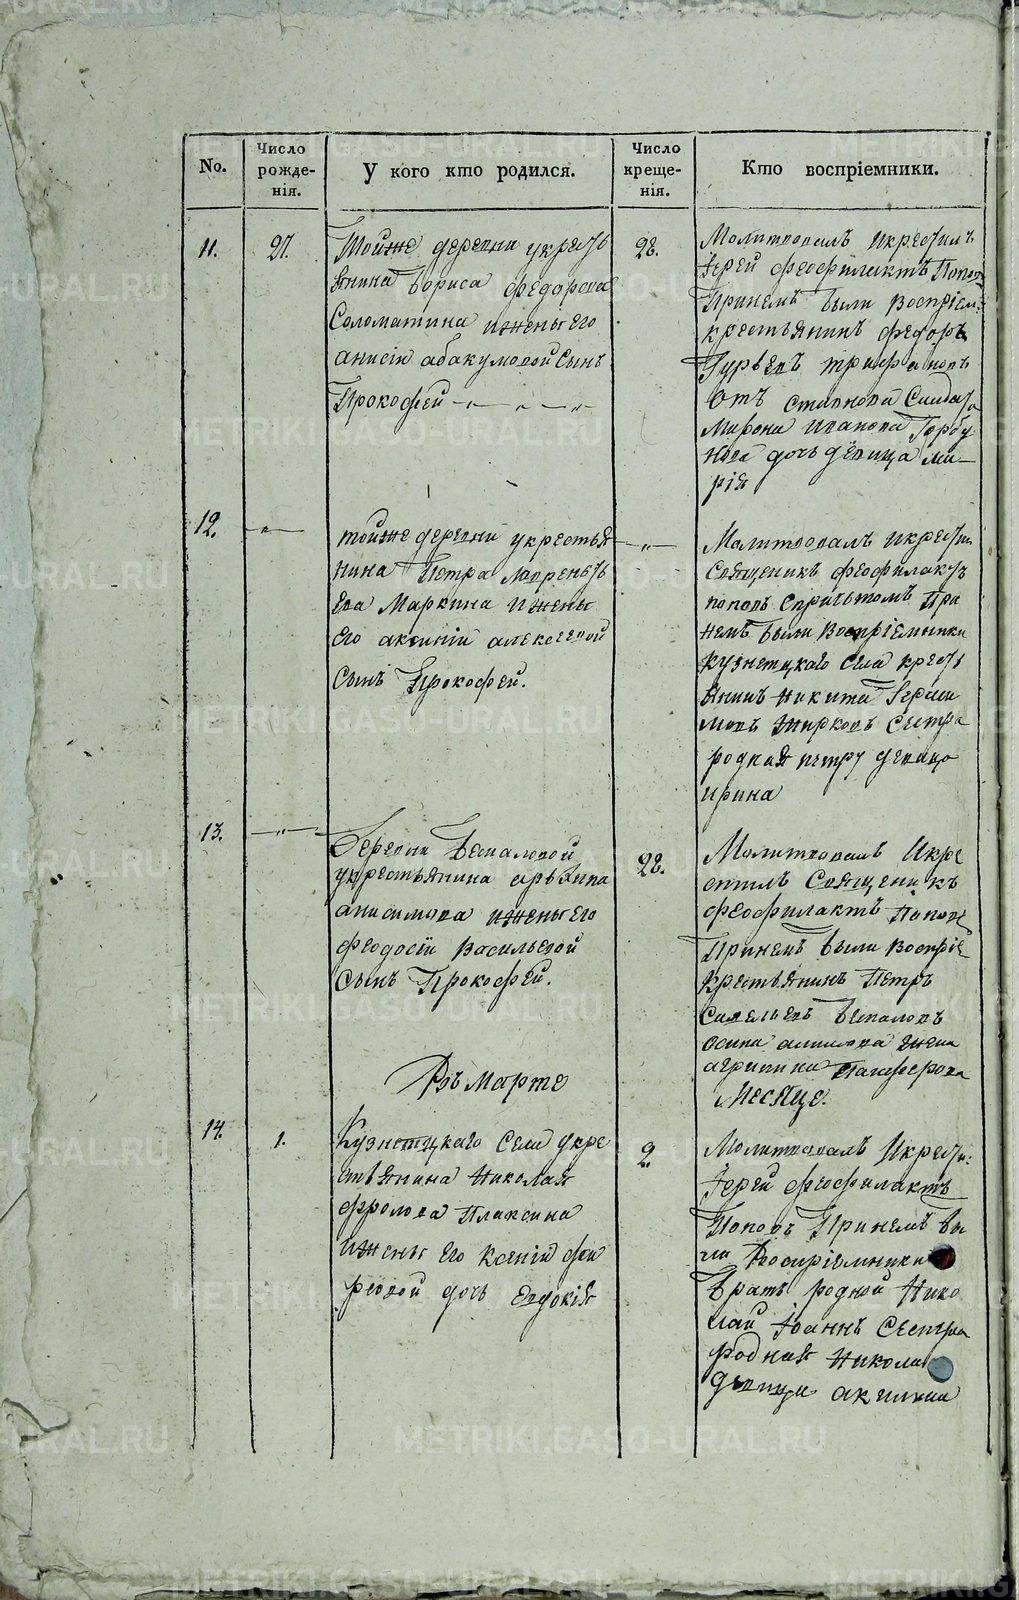 No.
Число рожде-
нія.
У кого кто родился.
Число креще-
нія.
Кто воспріемники.
11.
27.
Тойже деревни укресть
янина Бориса Федорова
Соломатина ижены его
анисіи абакумовой Сынъ
Прокофей
28.
Молитвовалъ икрестилъ
Іерей Феофилактъ Попов
Принемъ были Воспріем:
крестьянинъ Федоръ
Гурьевъ трифановъ
Отъ
Мирона Иванова Горбу
нова дочь девица ма-
рія
12.
тойже деревни укрестья
нина Петра Лавренть
ева Маркина ижены
его аксиніи алексеевой
Сынъ Прокофей.
Молитвовалъ икрести
Священикъ Феофилактъ
поповъ Спричьтомъ При
немъ были Воспріемники
Кузнецкаго Села кресть
янинъ Никита Гераси
мовъ Жирковъ Сестра
родная петру девица
ирина
13.
Деревни Беспаловой
укрестьянина
анисимова ижены его
феодосіи Васильевой
Сынъ Прокофей.
28.
Молитвовалъ Икре
стилъ Священикъ
Феофилактъ Попов
Принемъ были Воспріе
крестьянинъ Петръ
Савельевъ Беспаловъ
Осипа жена
агрипина
Въ Марте
Месяце.
14.
1.
Кузнецкаго Села укре
стьянина Николая
Фролова Плаксина
ижены его Ксеніи
дочь Евдокія
2.
Молитвовалъ Икрести:
Іерей Феофилактъ
Поповъ Принемъ бы
ли Воспріемники
Братъ родной Нико
лай Іоаннъ Сестра
родная Никола
девица акилина
METRIKI.GASO-URAL.RU